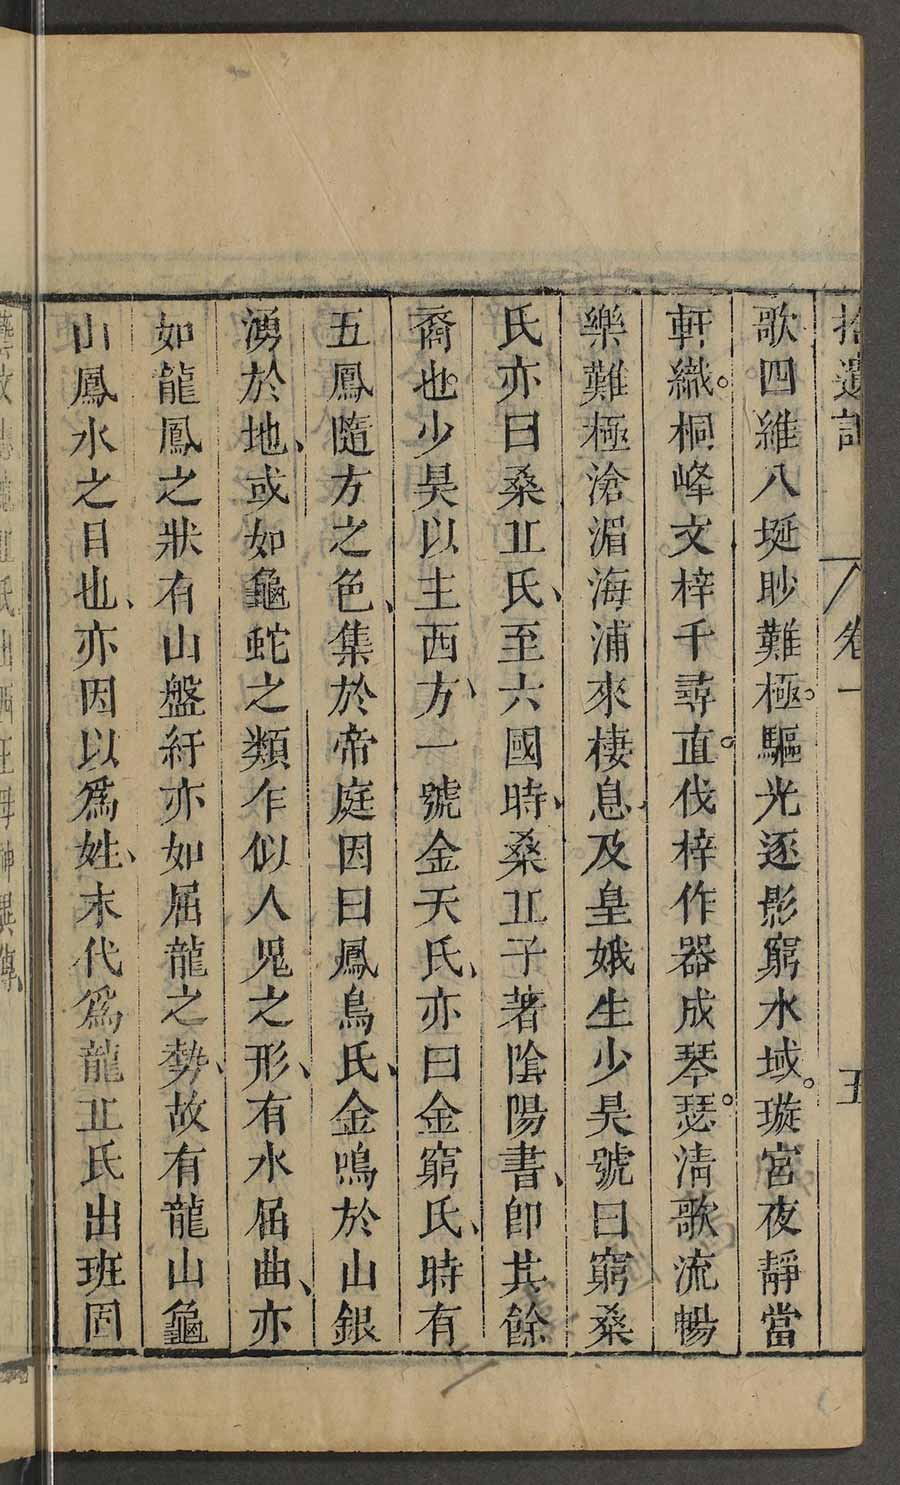 拾遺記 卷一 五
歌四維八埏眇難極。驅光逐影窮水域。璇宮夜靜當
軒織。桐峰文梓千尋直。伐梓作器成琴瑟。清歌流暢
樂難極滄湄海浦來棲息、及皇娥生少昊號曰窮桑
氏亦曰桑丘氏、至六國時、桑丘子著陰陽書、卽其餘
裔也。少昊以主西方、一號金天氏、亦曰金窮氏、時有
五鳳隨方之色、集於帝庭因曰鳳鳥氏、金鳴於山銀
湧於地、或如龜蛇之類乍似人鬼之形、有水屈曲、亦
如龍鳳之狀有山盤紆亦如屈龍之勢、故有龍山龜
山鳳水之目也、亦因以爲姓、末代爲龍丘氏出班固